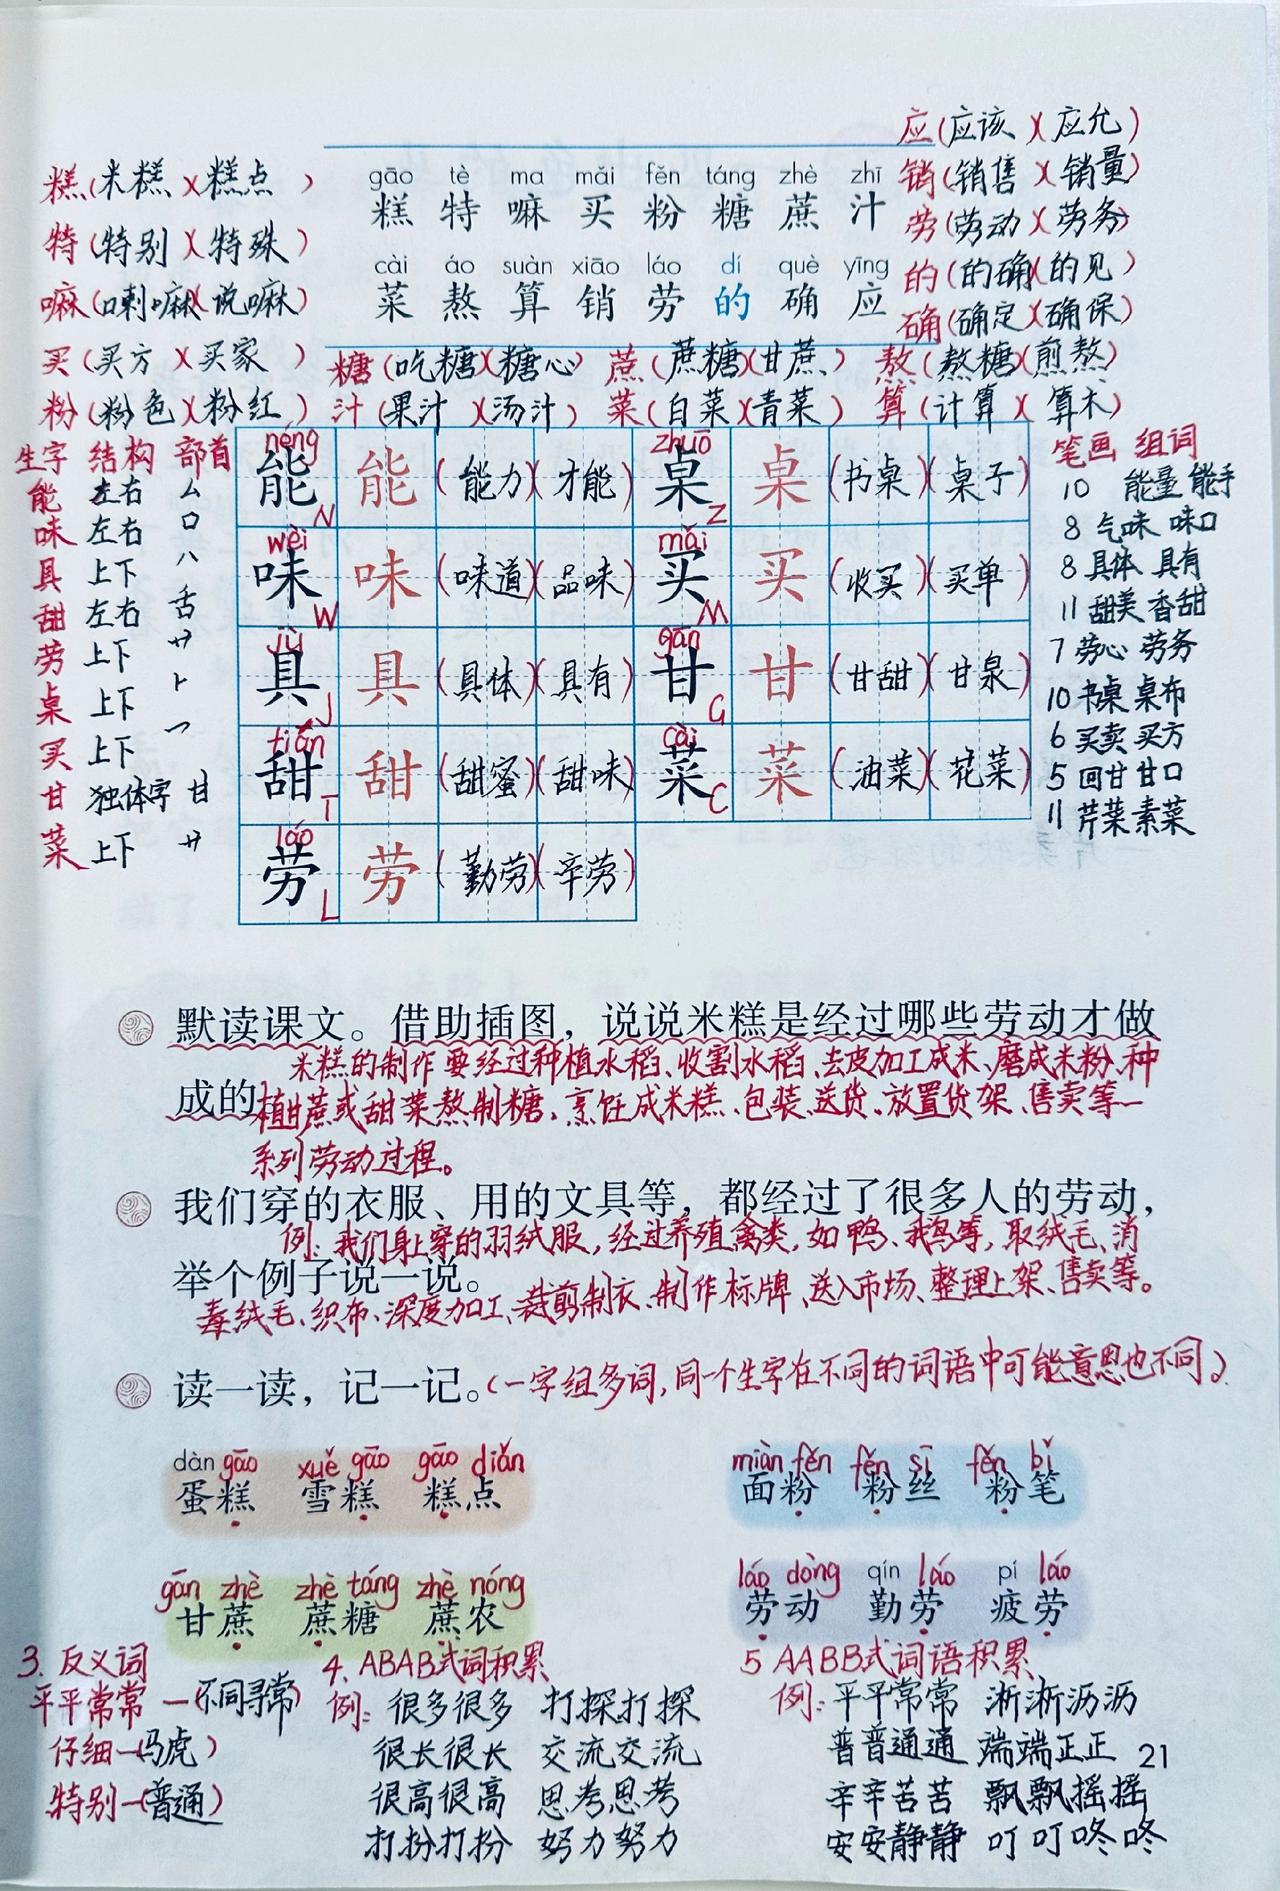 应(应该)(应允)
糕(米糕)(糕点)
gāo tè ma mǎi fěn táng zhè zhī
糕 特 嘛 买 粉 糖 蔗 汁
销(销售)(销量)
特(特别)(特殊)
劳(劳动)(劳务)
cài áo suàn xiāo láo dí què yīng
菜 熬 算 销 劳 的 确 应
的(的确)(的见)
嘛(喇嘛)(说嘛)
确(确定)(确保)
买(买方)(买家)
糖(吃糖)(糖心) 蔗(蔗糖)(甘蔗) 熬(熬糖)(煎熬)
粉(粉色)(粉红) 汁(果汁)(汤汁) 菜(白菜)(青菜) 算(计算)(算术)
生字 结构 部首
能 左右 厶
味 左右 口
具 上下 八
甜 左右 舌
劳 上下 艹
桌 上下 ⺊
买 上下 乛
甘 独体字 甘
菜 上下 艹
néng zhuō
能 能 (能力)(才能) 桌 桌 (书桌)(桌子)
N Z
wèi mǎi
味 味 (味道)(品味) 买 买 (收买)(买单)
W M
jù gān
具 具 (具体)(具有) 甘 甘 (甘甜)(甘泉)
J G
tián cài
甜 甜 (甜蜜)(甜味) 菜 菜 (油菜)(花菜)
T C
láo
劳 劳 (勤劳)(辛劳)
L
笔画 组词
10 能量 能手
8 气味 味口
8 具体 具有
11 甜美 香甜
7 劳心 劳务
10 书桌 桌布
6 买卖 买方
5 回甘 甘口
11 芹菜 素菜
默读课文。借助插图，说说米糕是经过哪些劳动才做
成的
米糕的制作要经过种植水稻、收割水稻、去皮加工成米、磨成米粉、种
植甘蔗或甜菜熬制糖、烹饪成米糕、包装、送货、放置货架、售卖等一
系列劳动过程。
我们穿的衣服、用的文具等，都经过了很多人的劳动，
举个例子说一说。
例:我们身上穿的羽绒服,经过养殖禽类,如鸭、鹅等,取绒毛、消
毒绒毛、织布、深度加工、裁剪制衣、制作标牌、送入市场、整理上架、售卖等。
读一读，记一记。(一字组多词,同一个生字在不同的词语中可能意思也不同。)
dàn gāo xuě gāo gāo diǎn miàn fěn fěn sī fěn bǐ
蛋糕 雪糕 糕点 面粉 粉丝 粉笔
gān zhè zhè táng zhè nóng láo dòng qín láo pí láo
甘蔗 蔗糖 蔗农 劳动 勤劳 疲劳
3. 反义词
平平常常—(不同寻常)
仔细—(马虎)
特别—(普通)
4. ABAB式词积累
例: 很多很多 打探打探
很长很长 交流交流
很高很高 思考思考
打扮打扮 努力努力
5 AABB式词语积累
例: 平平常常 淅淅沥沥
普普通通 端端正正
辛辛苦苦 飘飘摇摇
安安静静 叮叮咚咚
21